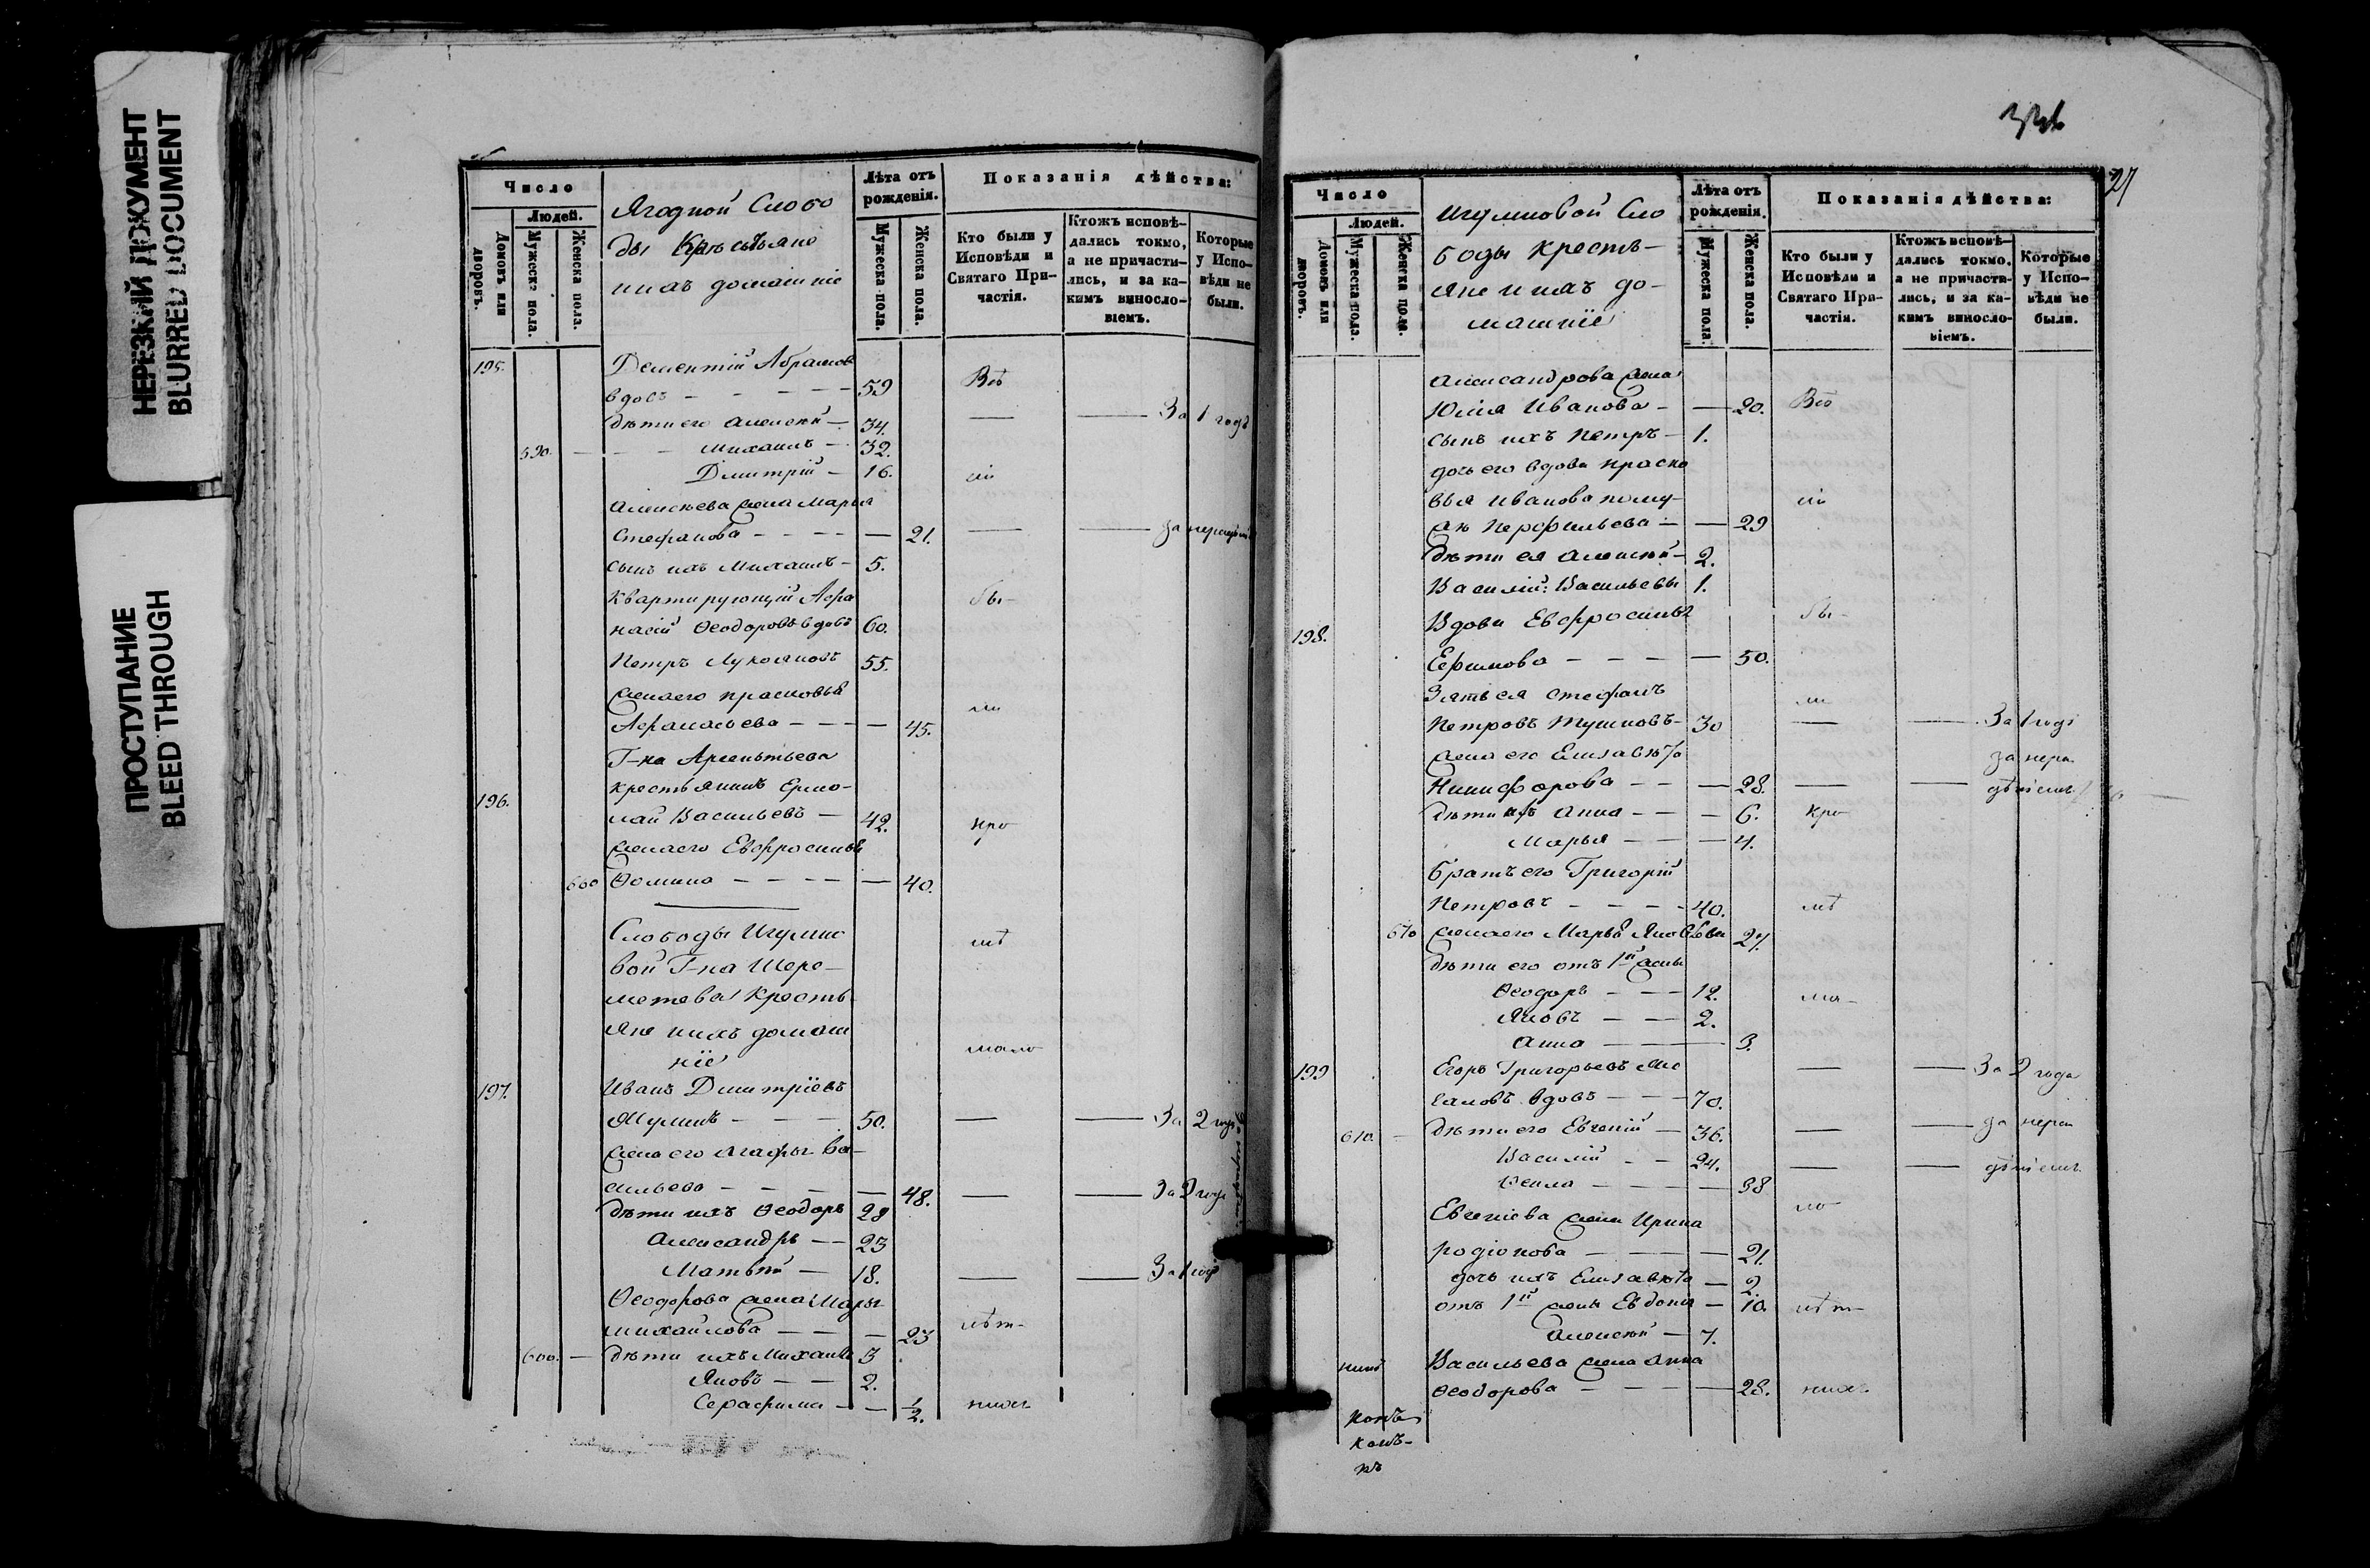 НЕРЕЗКИЙ ДОКУМЕНТ
BLURRED DOCUMENT
ПРОСТУПАНИЕ
BLEED THROUGH
Число
Людей.
Домовъ или дворовъ.
Мужеска пола.
Женска пола.
Ягодной Слобо
ды Крестьяне
и ихъ домашніе
Лѣта отъ рожденія.
Мужеска пола.
Женска пола.
Показанія дѣйства:
Кто были у Исповѣди и Святаго Причастія.
Ктожъ исповѣдались токмо, а не причастились, и за какимъ винословіемъ.
Которые у Исповѣди не были.
195. Дементій Абрамов
вдовъ - - - - 59 Всѣ
дѣти его Алексѣй - 34. — — За 1 годъ
590. - - - Михаилъ - 32.
Димитрій - 16.
Алексѣева жена Марья
Стефанова - - - - — 21. — — За нерадѣніемъ
сынъ ихъ Михаилъ - 5.
Квартирующій Афа бы-
насій Ѳеодоровъ вдовъ 60.
Петръ Лукояновъ 55.
жена его Прасковья ли
Афанасьева - - - — 45.
Г-на Арсентьева
196. крестьянинъ Ермо-
лай Васильевъ — 42. кро
жена его Евфросинья
600 Ѳомина - - - - — 40.
Слободы Игумно мѣ
вой Г-на Шере-
метева Кресть
яне и ихъ домаш мало
ніе
197. Иванъ Димитріевъ
50. — — За 2 года
жена его Агафья Ва-
сильева - - - - — 48. — — За 2 года
дѣти ихъ Ѳеодоръ 28
Александръ - - 23
Матвѣй - 18. — — За 1 годъ
Ѳеодорова жена Марья
Михаилова - - — 23 лѣт-
600. — дѣти ихъ Михаилъ 3
Яковъ - - 2.
Серафима - — 1/2. нихъ
27
Число
Людей.
Домовъ или дворовъ.
Мужеска пола.
Женска пола.
Игумновой Сло
боды Кресть-
яне и ихъ до-
машніе
Лѣта отъ рожденія.
Мужеска пола.
Женска пола.
Показанія дѣйства:
Кто были у Исповѣди и Святаго Причастія.
Ктожъ исповѣдались токмо, а не причастились, и за какимъ винословіемъ.
Которые у Исповѣди не были.
Александрова жена
Юлія Иванова - — 20. Всѣ
сынъ ихъ Петръ - 1.
дочь его вдова Праско
вья Иванова по му- ли
жѣ Перфильева - — 29
дѣти ея Алексѣй - 2.
Василій: Васильевы 1.
198. Вдова Евфросинья бы-
Ефимова - - - — 50.
Зять ея Стефанъ ли
Петровъ Тушновъ - 30 — — За 1 годъ
жена его Елисавета за нера
Никифорова - - — 28. — — дѣніемъ
дѣти ихъ Анна - - — 6. кро
Марья - - — 4.
Братъ его Григорій
Петровъ - - - - 40. мѣ
610 жена его Марья Яковлева 27.
дѣти его отъ 1й жены
Ѳеодоръ - - - 12. ма-
Яковъ - - 2.
Анна - - - 3.
199 Егоръ Григорьевъ — — За 2 года
вдовъ - - - 70.
610. — дѣти его Евгеній - 36. — — за нера
Василій - - 24. — — дѣніемъ
- - - — 38
Евгеніева жена Ирина ло
Родіонова - - - — 21.
дочь ихъ Елисавета — 2.
отъ 1й жены Евдокія — 10. лѣт-
Алексѣй - 7.
Васильева жена Анна
Ѳеодорова - - - — 28. нихъ